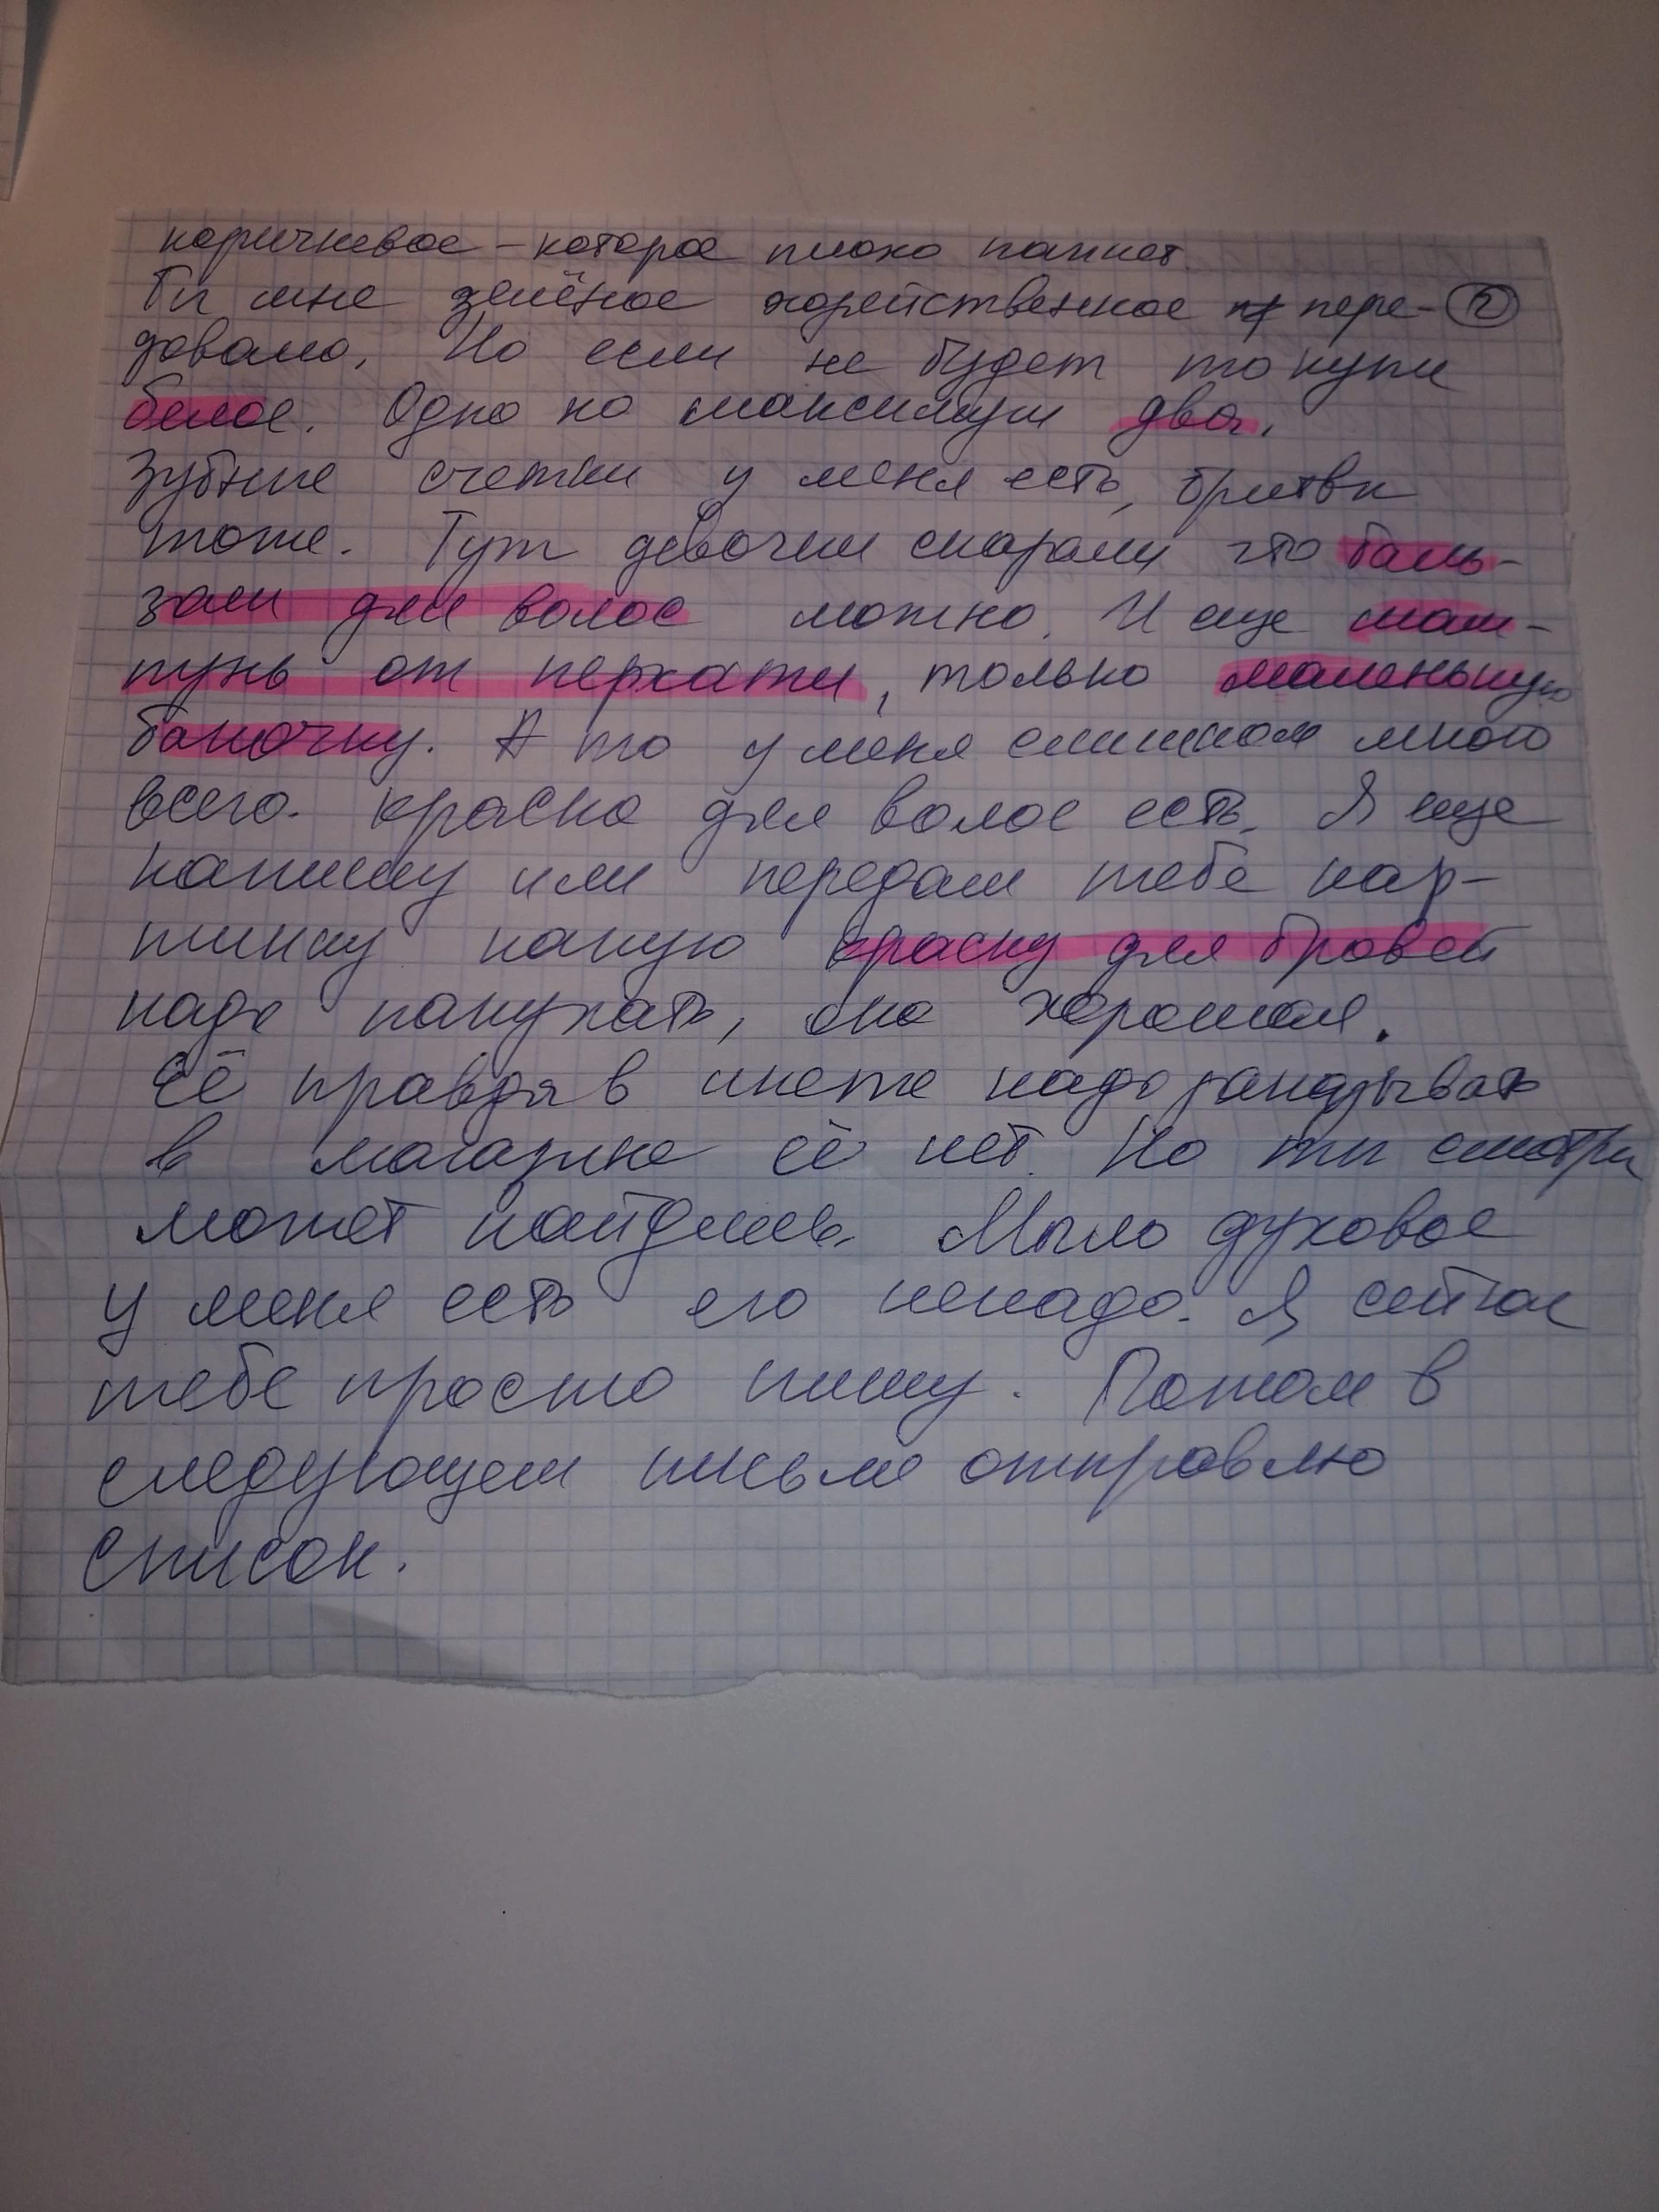 коричневое - которое плохо пахнет.
Ты мне зелёное хозяйственное пере- ②
довала. Но если не будет то купи
белое. Одно но максимум два.
Зубные счетки у меня есть, бритвы
тоже. Тут девочки сказали что баль-
зам для волос можно. И еще шам-
пунь от перхати, только маленькую
баночку. А то у меня слишком много
всего. Краска для волос есть. Я еще
напишу или передам тебе кар-
тинку какую краску для бровей
надо покупать, она хорошая.
Её правда в инете надо заказывать
в магазине её нет. Но ты смотри
может найдешь. Мыло духовое
у меня есть его ненадо. Я сейчас
тебе просто пишу. Потом в
следующем письме отправлю
список.